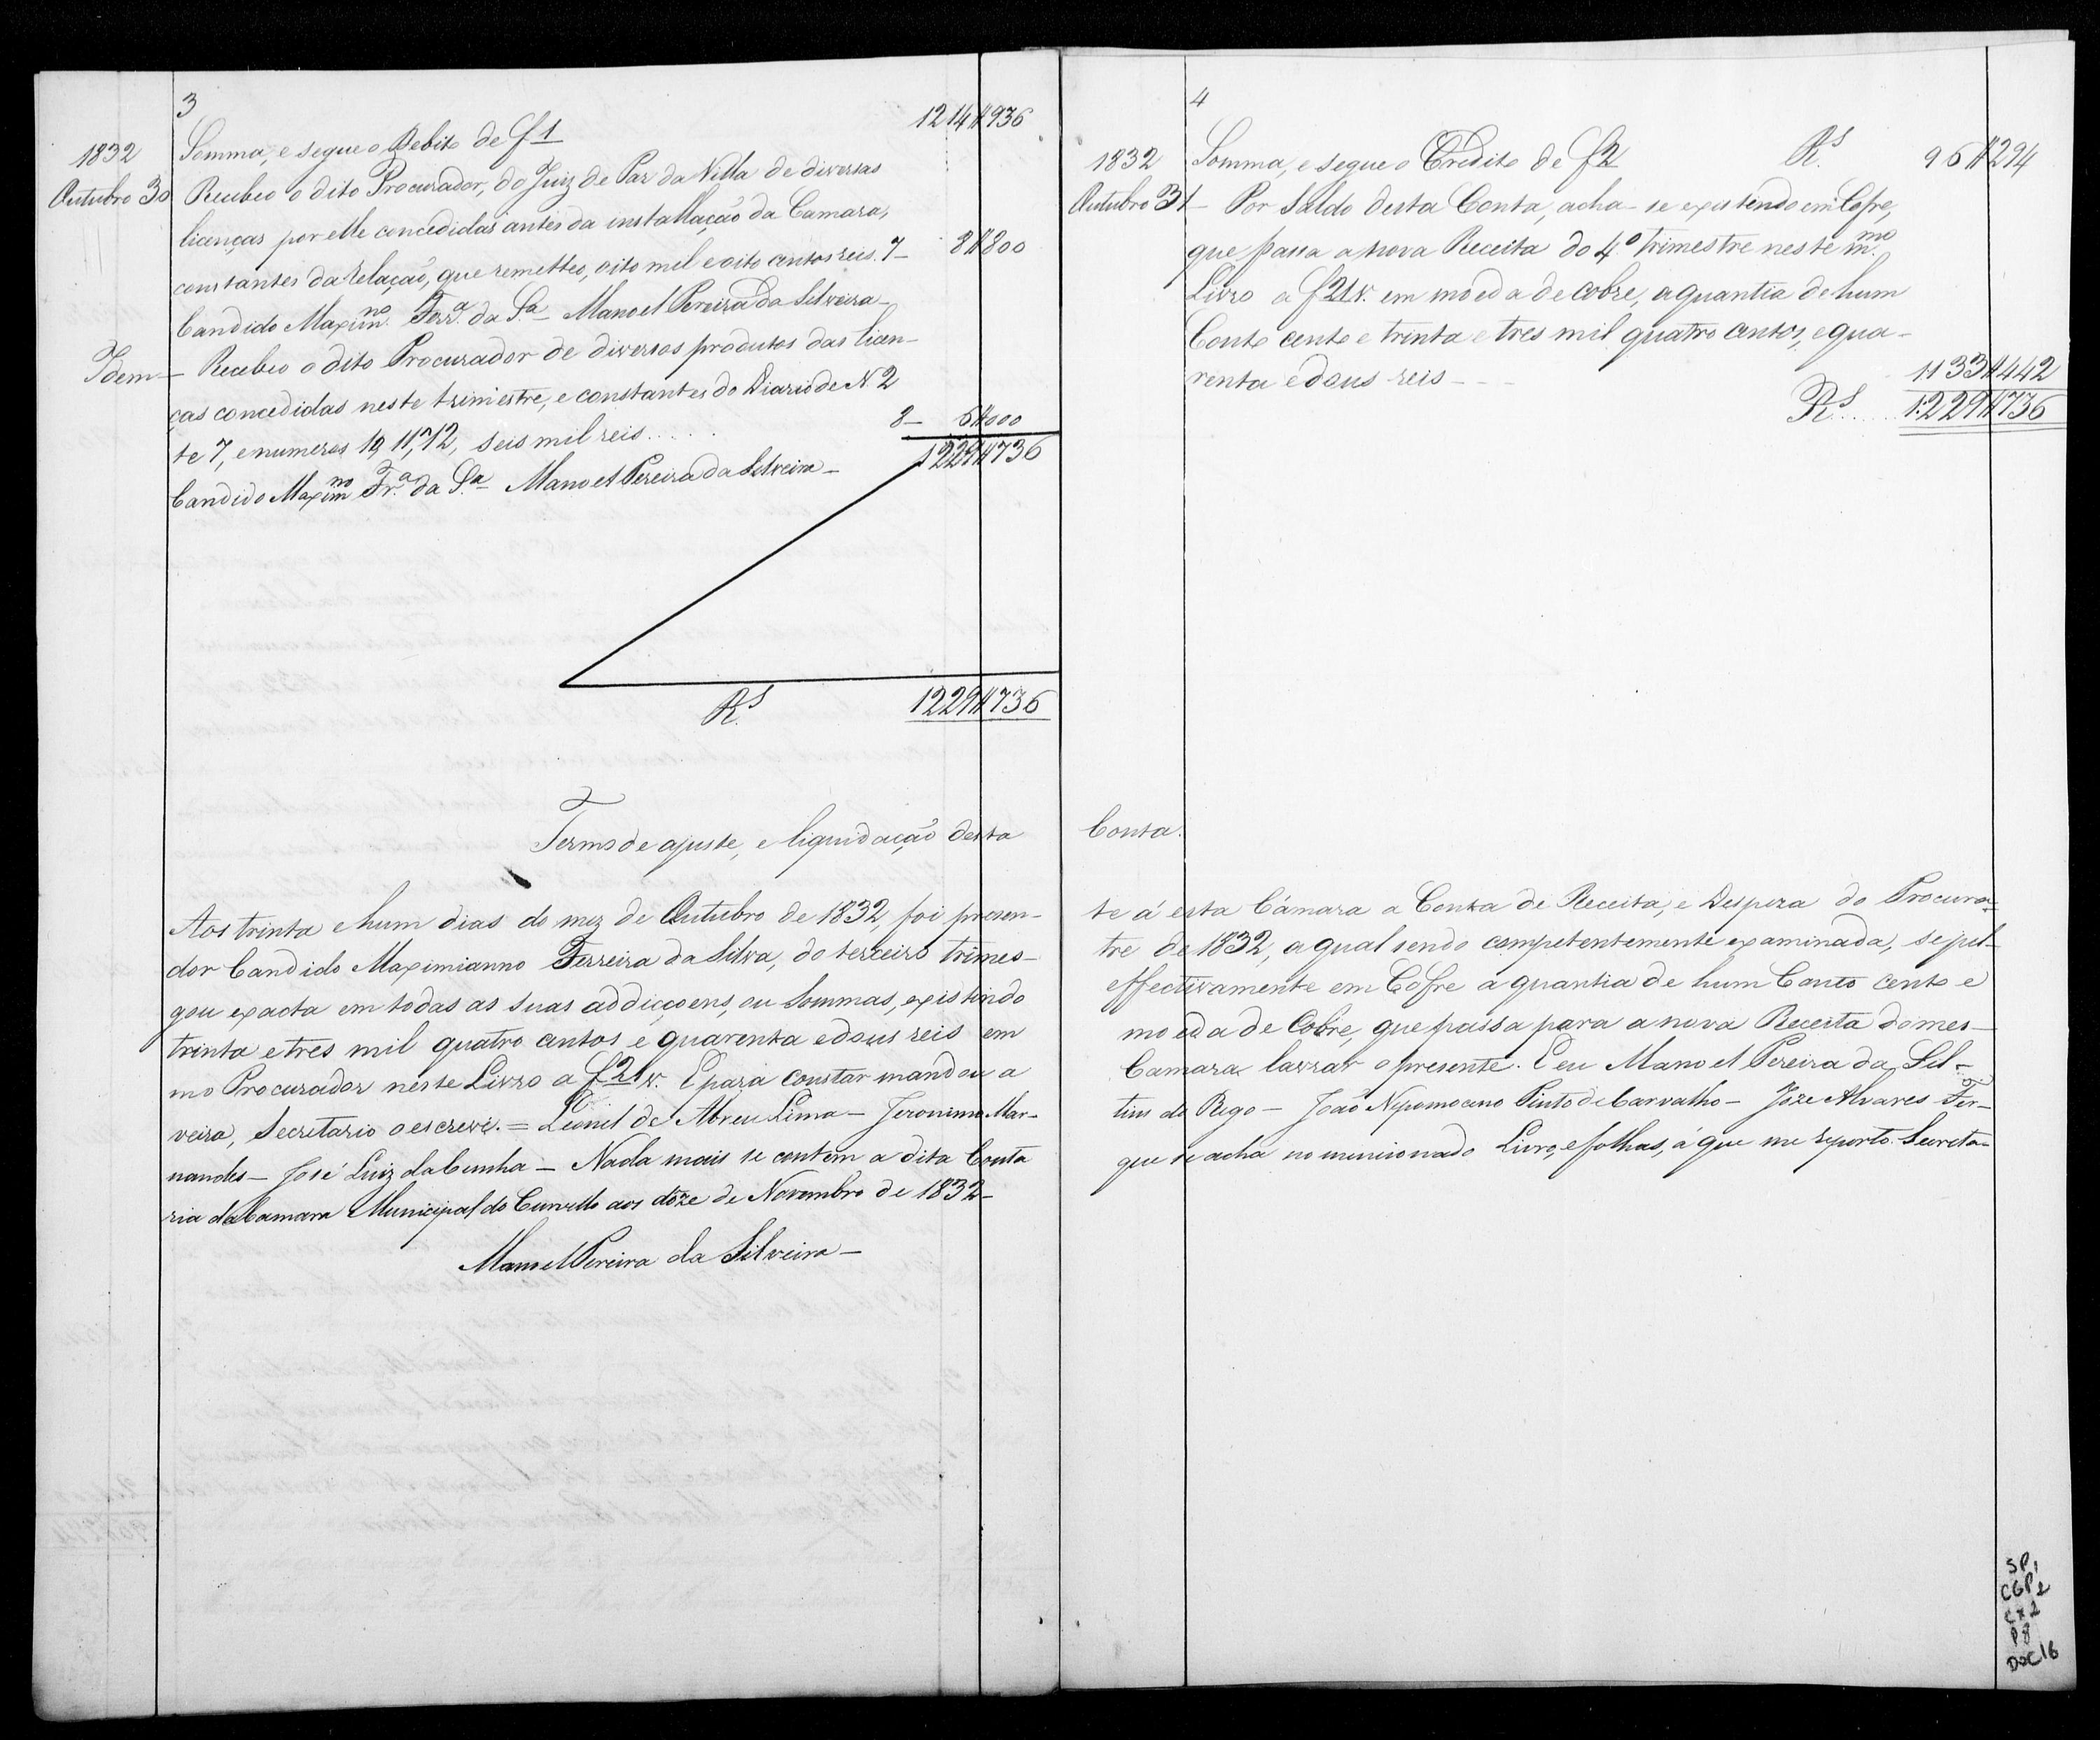 3
Somma, e segue o Debito de f 1 1214#936
1832
Outubro 30 Recebeo o dito Procurador, do Juiz de Paz da Villa de diversas
licenças por elle concedidas antes da installação da Camara,
constantes da relação, que remetteo, oito mil e oito centos reis. 7— 8#800
Candido Maxim.no Ferr.a da S.a — Manoel Pereira da Silveira —
Idem — Recebeo o dito Procurador de diversos produtos das licen-
ças concedidas neste trimestre, e constantes do Diario de N. 2
te 7, e numeros 10, 11, 12, seis mil reis..... 8— 6#000
1229#736
Candido Maxim.no Fr.a da S.a Manoel Pereira da Silveira —
R.s 1229#736
4
1832 Somma, e segue o Credito de f 2 R.s 96#294
Outubro 31 — Por Saldo desta Conta, acha-se existendo em Cofre,
que passa a nova Receita do 4.º trimestre neste m.mo
Livro a f 21 v. em moeda de cobre, a quantia de hum
Conto cento e trinta e tres mil quatro centos, e qua-
renta e dous reis — — 1133#442
R.s.... 1:229#736
Termo de ajuste, e liquidação desta Conta.
Aos trinta e hum dias do mez de Outubro de 1832, foi presen- te á esta Cámara a Conta de Receita, e Despeza do Procura-
dor Candido Maximianno Ferreira da Silva, do terceiro trimes- tre de 1832, a qual sendo competentemente examinada, se jul-
gou exacta em todas as suas addiçoens, ou Sommas, existindo effectivamente em Cofre a quantia de hum Conto cento e
trinta e tres mil quatro centos e quarenta e dous reis em moeda de Cobre, que passa para a nova Receita do mes-
mo Procurador neste Livro a f 21 v. E para constar mandou a Camara lavrar o presente. E eu Manoel Pereira da Sil-
veira, Secretario o escrevi. = Leonel de Abreu Lima — Jeronimo Mar- tins do Rego — João Nepomoceno Pinto de Carvalho — Joze Alvares Fer-
nandes — José Luiz da Cunha — Nada mais se contem a dita Conta que se acha no mencionado Livro, e folhas, á que me reporto. Secreta-
ria da Camara Municipal do Curvello aos doze de Novembro de 1832 —
Manoel Pereira da Silveira —
SP1
CGP2
Cx2
P8
Doc16